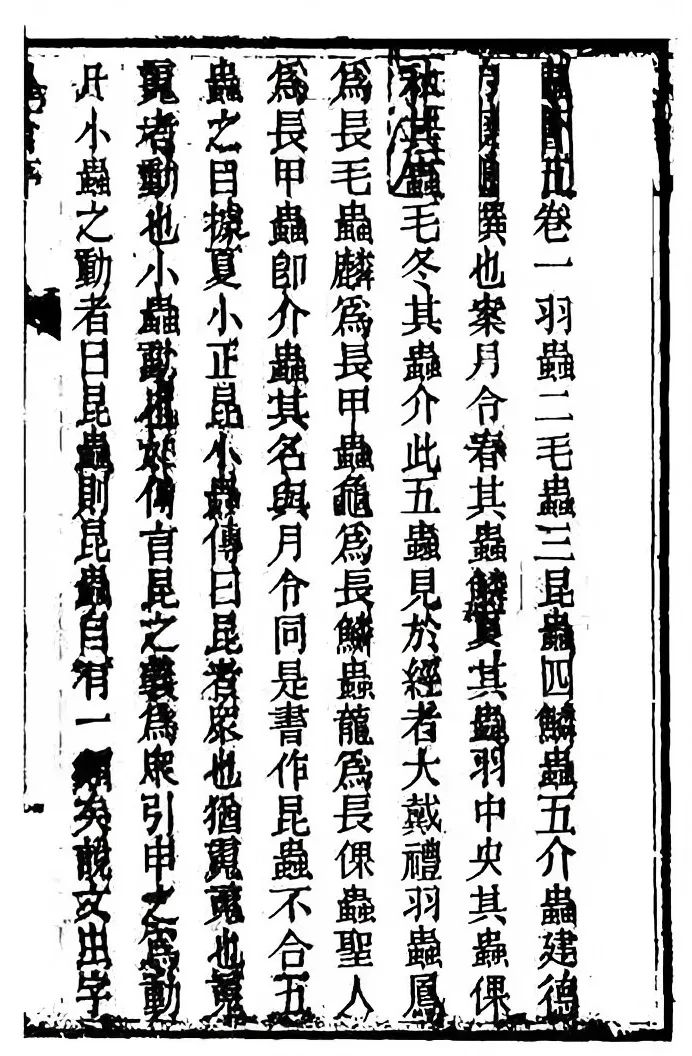 卷一羽蟲二毛蟲三昆蟲四鱗蟲五介蟲建德
撰也案月令春其蟲鱗夏其蟲羽中央其蟲倮
秋其蟲毛冬其蟲介此五蟲見於經者大戴禮羽蟲鳳
爲長毛蟲麟爲長甲蟲龜爲長鱗蟲龍爲長倮蟲聖人
爲長甲蟲卽介蟲其名與月令同是書作昆蟲不合五
蟲之目據夏小正昆小蟲傳曰昆者眾也猶䰟䰟也䰟
䰟者動也小蟲動也傳言昆之義爲眾引申之爲動
凡小蟲之動者曰昆蟲則昆蟲自有一類矣說文虫字